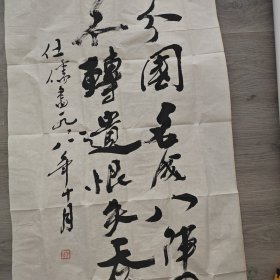 分國名成八陣
不轉遺恨失吞
書一九八八年十月